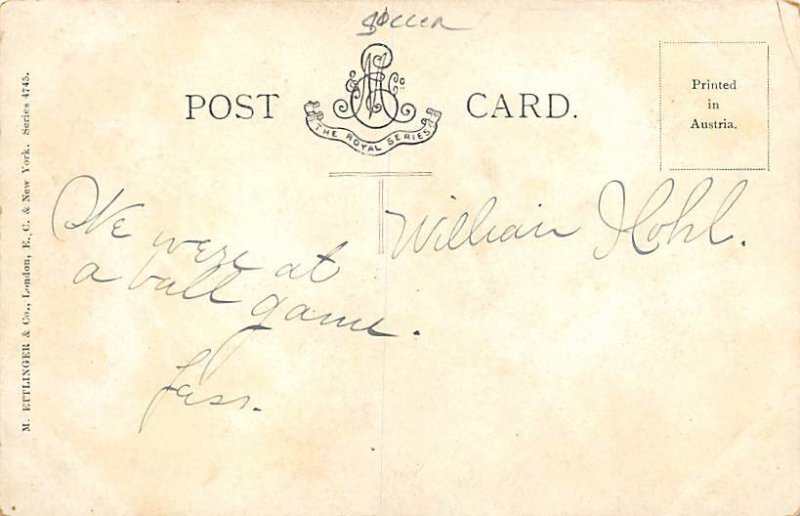 Soccer
POST CARD.
THE ROYAL SERIES
Printed
in
Austria.
M. ETTLINGER & Co., London, E.C. & New York. Series 4745.
We were at
a ball game.
William Hohl.